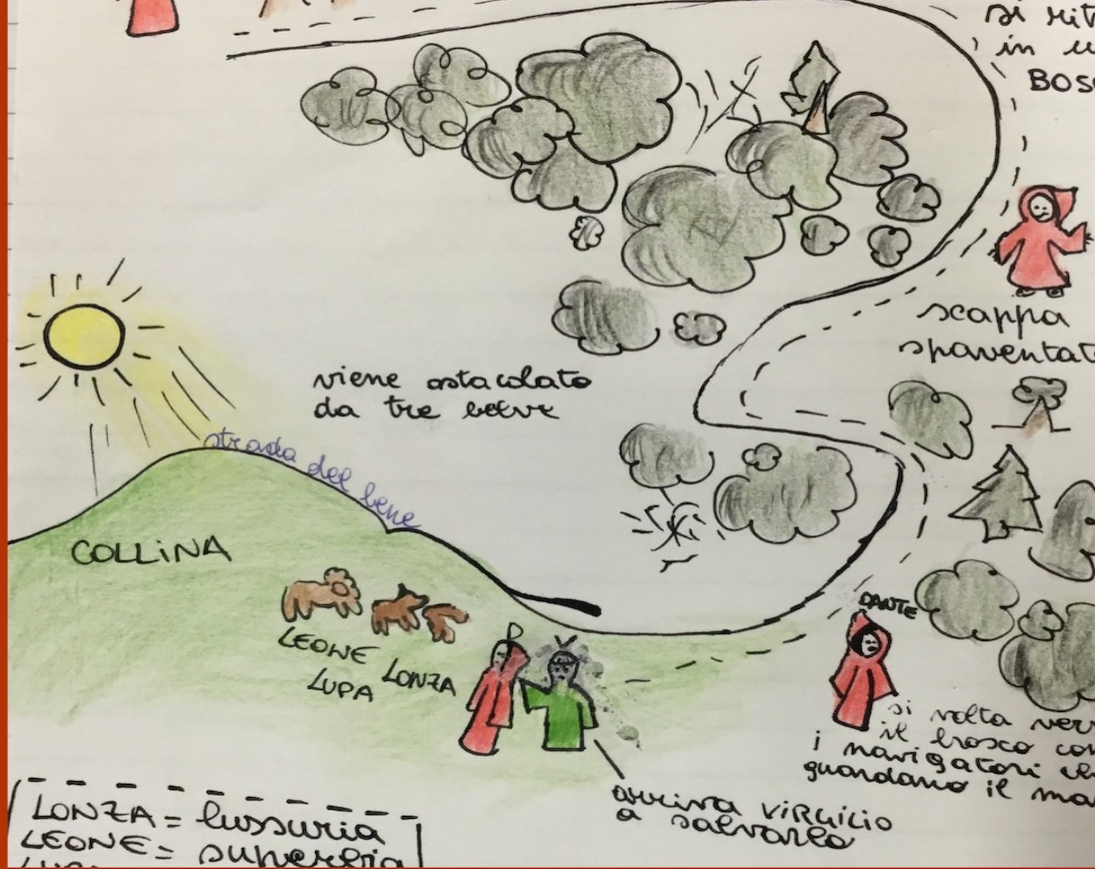 si rit
in u
BOS
scappa
spaventat
viene ostacolato
da tre belve
strada del bene
COLLINA
LEONE
LONZA
LUPA
DANTE
si volta ver
il bosco co
i navigatori ch
guardano il ma
arriva VIRGILIO
a salvarlo
LONZA = lussuria
LEONE = superbia
LUPA